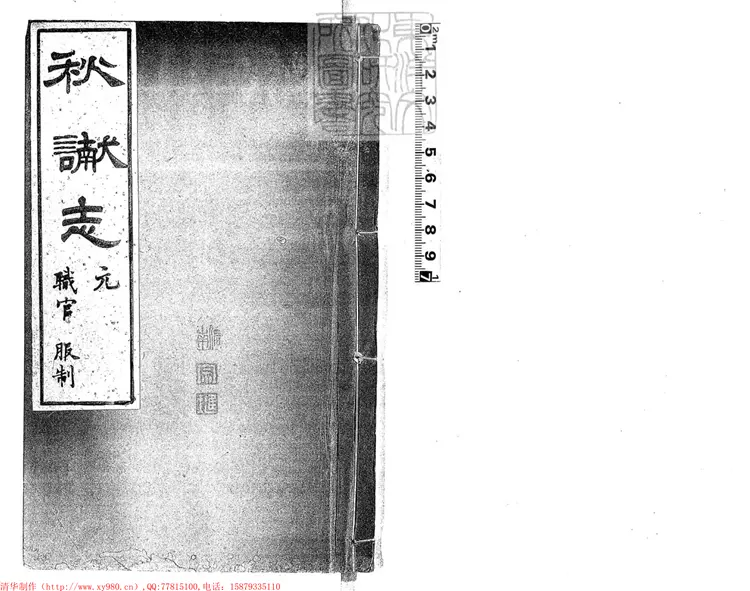 秋讞志
元
職官 服制
0 1 2 3 4 5 6 7 8 9
清华制作（http://www.xy980.cn）,QQ:77815100,电话：15879335110